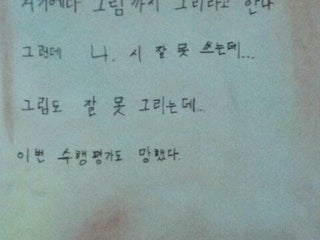 저기에다 그림까지 그리라고 한다
그런데 나. 시 잘 못 쓰는데...
그림도 잘 못 그리는데..
이번 수행평가도 망했다.